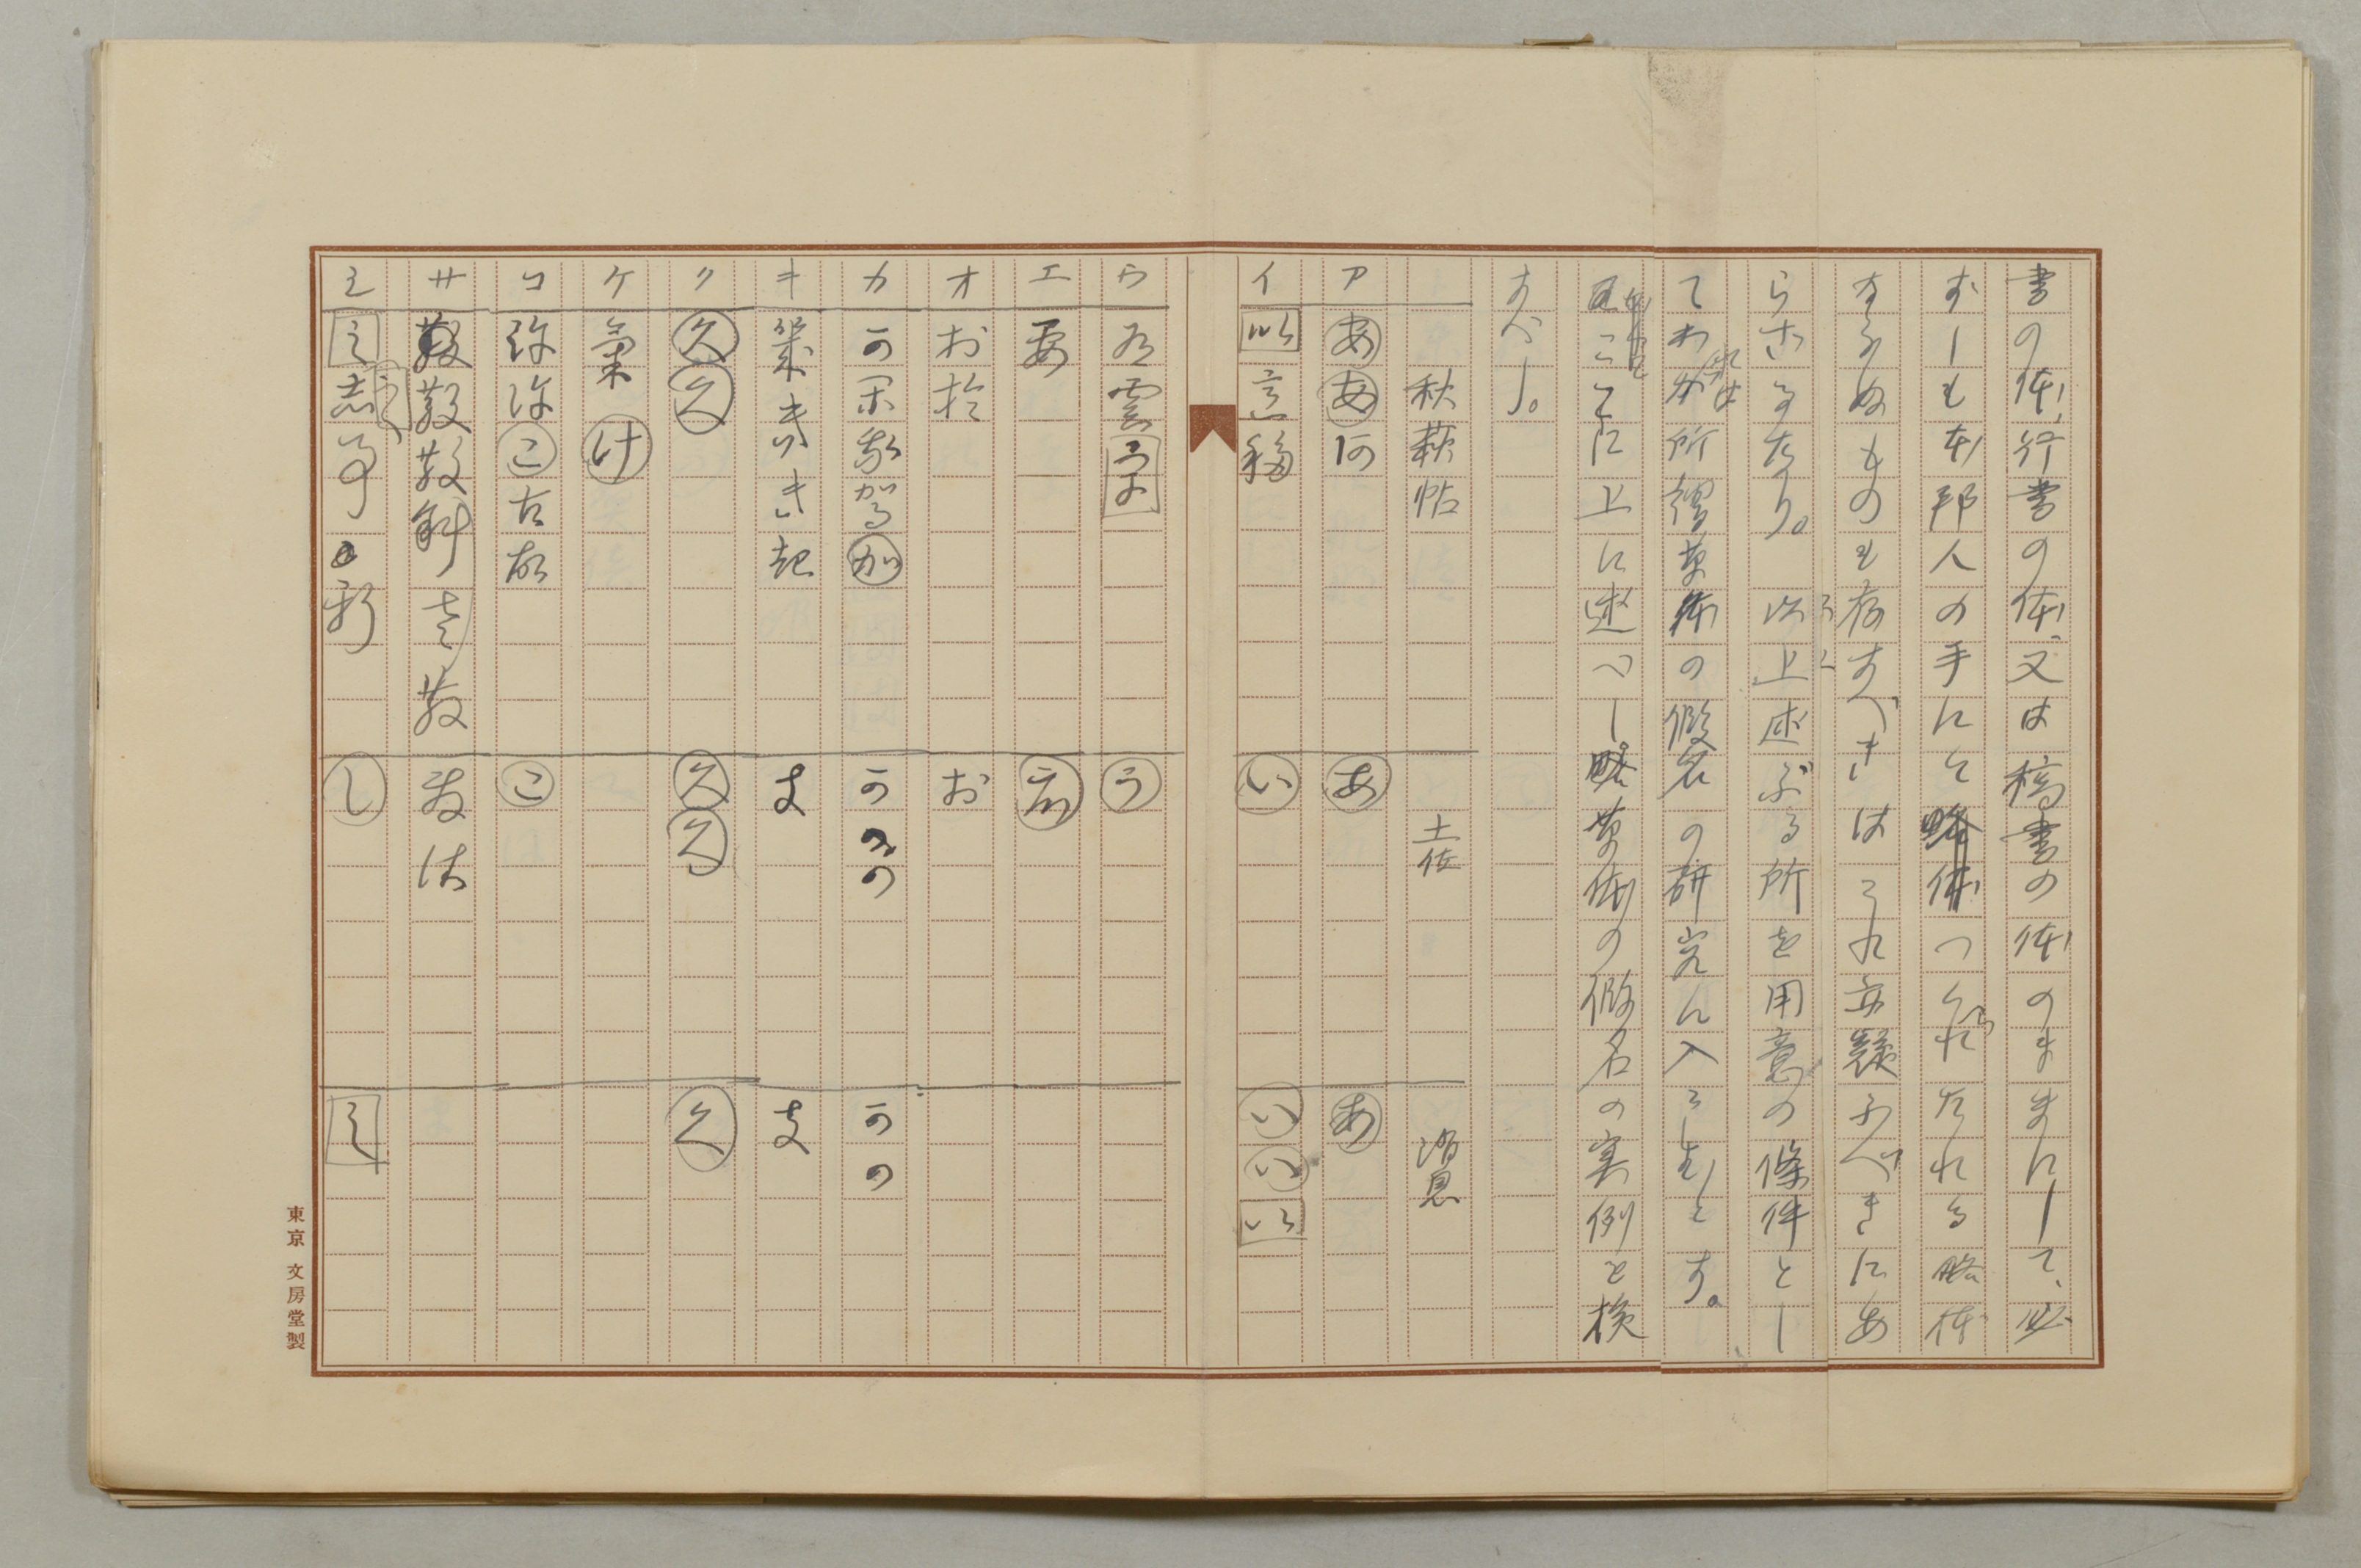 書の体、行書の体、又は稿書の体のままにして、必
ずしも本邦人の手にて略体つくられたれる略体
ならぬものも存すべきはこれ亦疑ふべきにあ
らざるなり。以上述ぶる所を用意の條件とし
て所謂草体の假名の研究に入らむとす。
ここに上に述べし略草体の假名の実例を検
すべし。
秋萩帖 土佐 消息
ア あ あ 阿 あ あ
イ 以 意 移 い い い 以
ウ 有 雲 宇 う
エ 要
オ お 於 お
カ 可 閑 我 駕 加 可 の 可 の
キ 幾 き き 起 支 支
ク 久 久 久 久 久
ケ 氣 け
コ 弥 弥 こ 古 故 こ
サ 散 散 散 斜 散
シ 之 志 之 事 新 し 之
東京 文房堂製